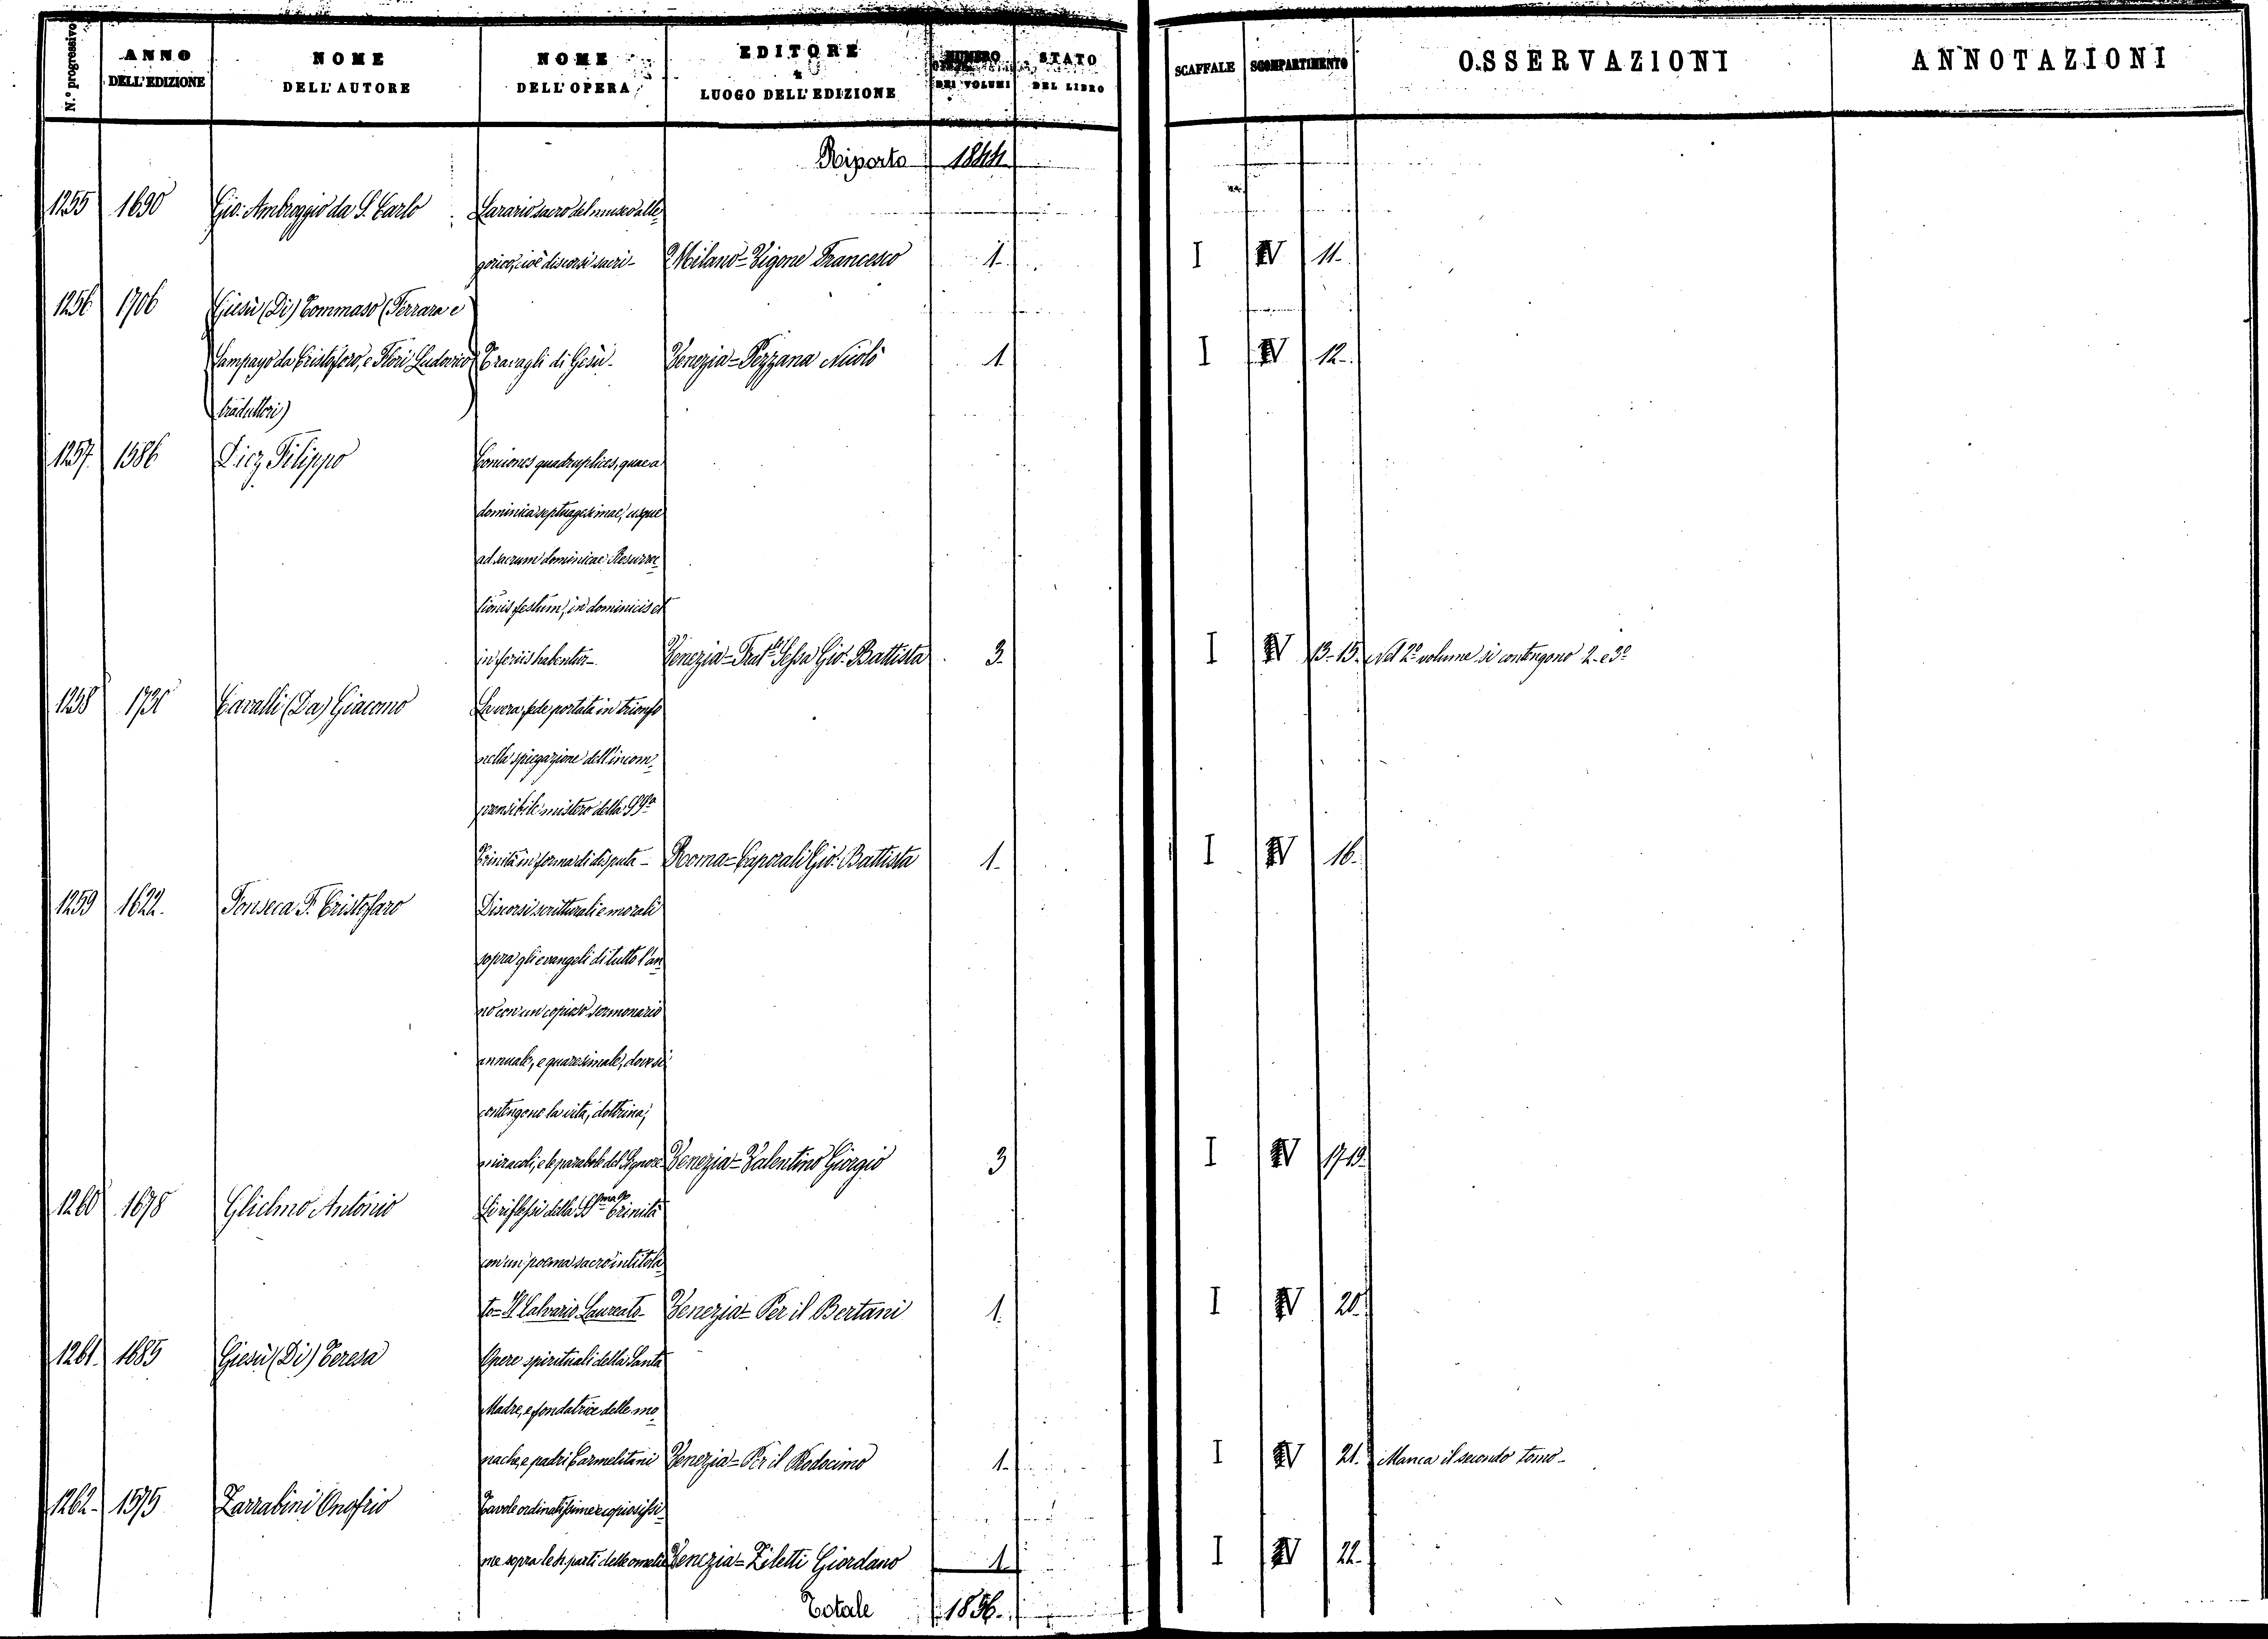 N.° progressivo | ANNO DELL'EDIZIONE | NOME DELL'AUTORE | NOME DELL'OPERA | EDITORE e LUOGO DELL'EDIZIONE | NUMERO DEI VOLUMI | STATO DEL LIBRO | SCAFFALE | SCOMPARTIMENTO | OSSERVAZIONI | ANNOTAZIONI
Riporto 1844
1255 1690 Gio: Ambroggio da S. Carlo Larario sacro del museo alle-
gorico, cioè discorsi sacri- Milano=Vigone Francesco 1. I IV 11.
1256 1706 Giesù (Di) Tommaso (Ferrara e
Lampago da Cristoforo, e Flori Ludovico Travagli di Gesù- Venezia=Pezzana Nicolò 1 I IV 12.
traduttori)
1257. 1586 Diez Filippo Conciones quadruplices, quae a
dominica septuagesimae, usque
ad sacrum dominicae Resurrec-
tionis festum, in dominicis et
in feriis habentur- Venezia=Frat.li Sessa Gio: Battista 3. I IV 13-15. Nel 2° volume si contengono 2. e 3°
1258 1730 Cavalli (Da) Giacomo La vera fede portata in trionfo
nella spiegazione dell'incom-
prensibile mistero della SS.ma
Trinità in forma di disputa- Roma=Caporali Gio: Battista 1. I IV 16.
1259 1622. Fonseca F. Cristofaro Discorsi scritturali e morali
sopra gli evangeli di tutto l'an-
no con un copioso sermonario
annuale, e quaresimale, dove si
contengono la vita, dottrina,
miracoli, e le parabole del Signore- Venezia=Valentino Giorgio 3 I IV 17-19.
1260 1678 Glielmo Antonio Li riflessi della SS.ma Trinità
con un poema sacro intitola-
to= Il Calvario Laureato- Venezia= Per il Bertani 1. I IV 20.
1261. 1685 Giesù (Di) Teresa Opere spirituali della Santa
Madre, e fondatrice delle mo-
nache, e padri Carmelitani Venezia= Per il Rodocimo 1. I IV 21. Manca il secondo tomo-
1262- 1575 Zarrabini Onofrio Tavole ordinatissime e copiosissi-
me sopra le tr. parti delle omelie Venezia=Ziletti Giordano 1. I IV 22.
Totale 1856.